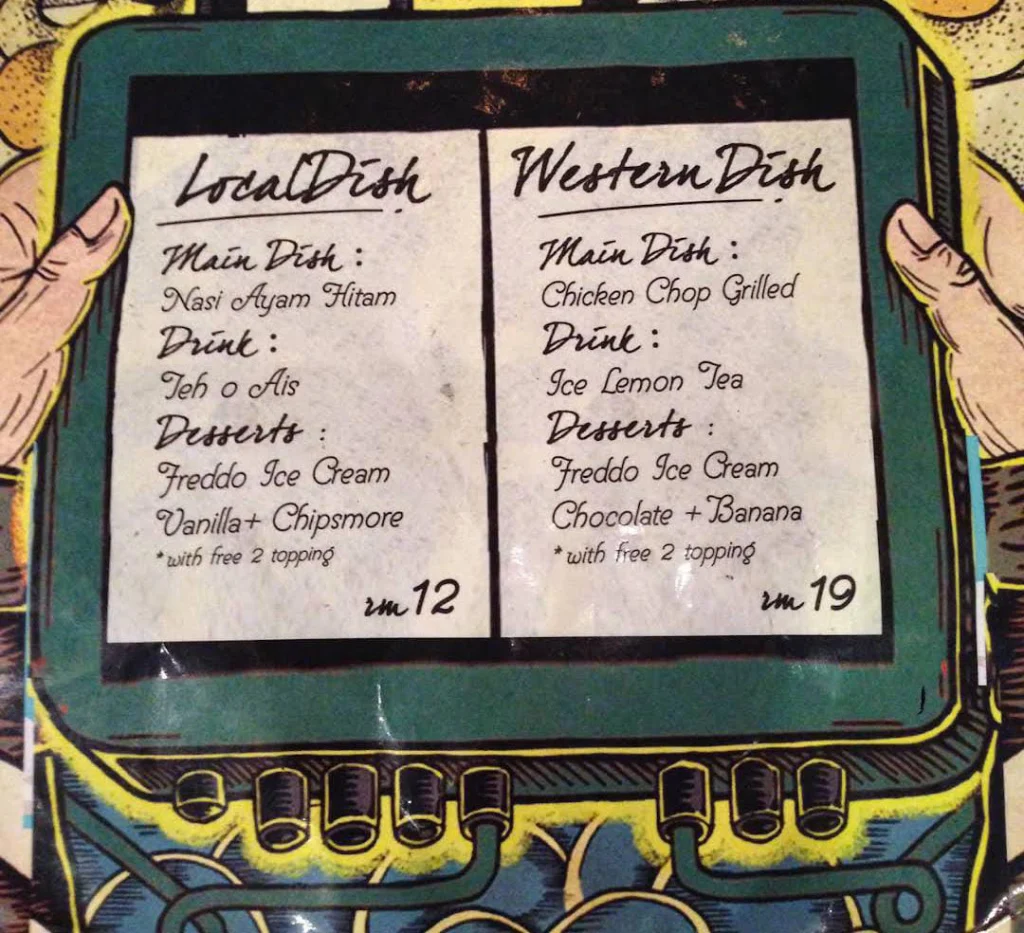 Local Dish
Main Dish :
Nasi Ayam Hitam
Drink :
Teh o Ais
Desserts :
Freddo Ice Cream
Vanilla+ Chipsmore
*with free 2 topping
rm 12
Western Dish
Main Dish :
Chicken Chop Grilled
Drink :
Ice Lemon Tea
Desserts :
Freddo Ice Cream
Chocolate +Banana
*with free 2 topping
rm 19